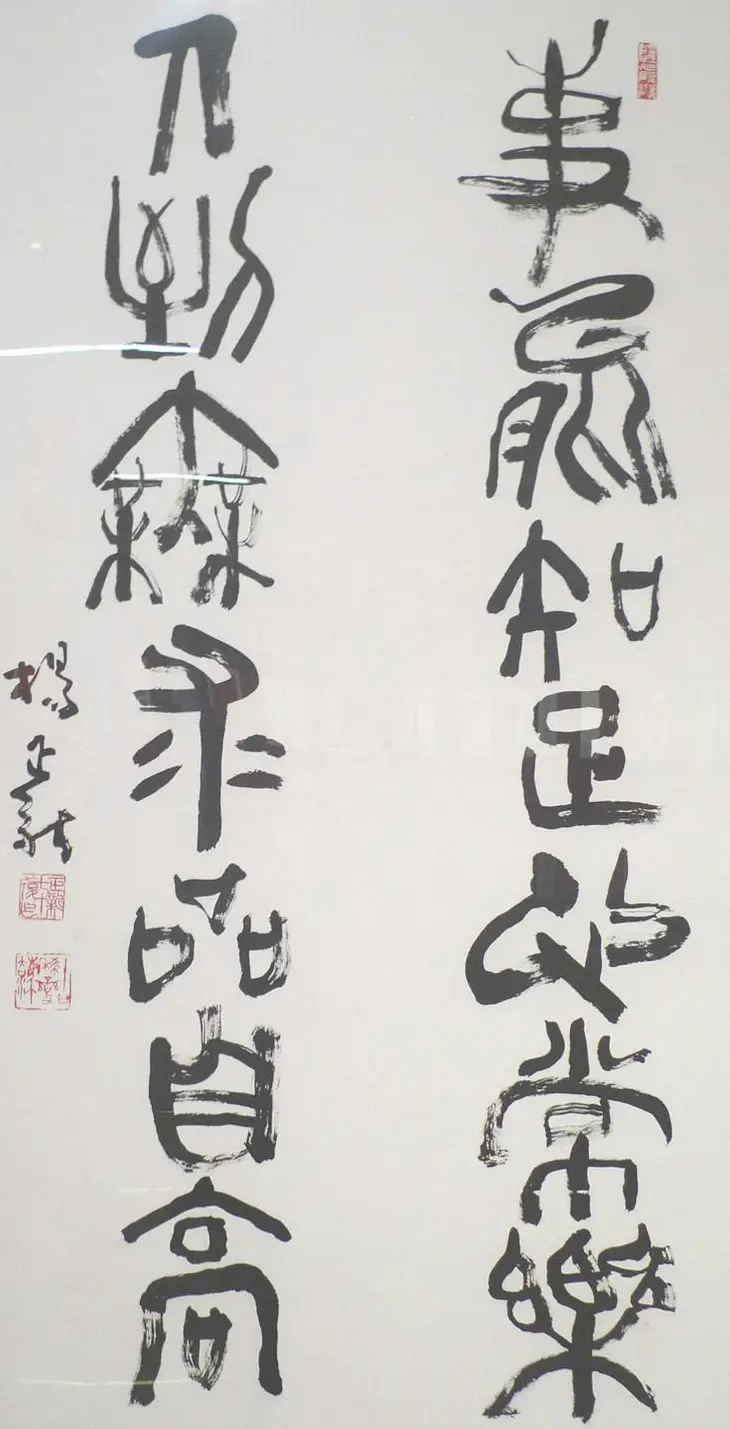 事能知足心常樂
人到無求品自高
楊正龍